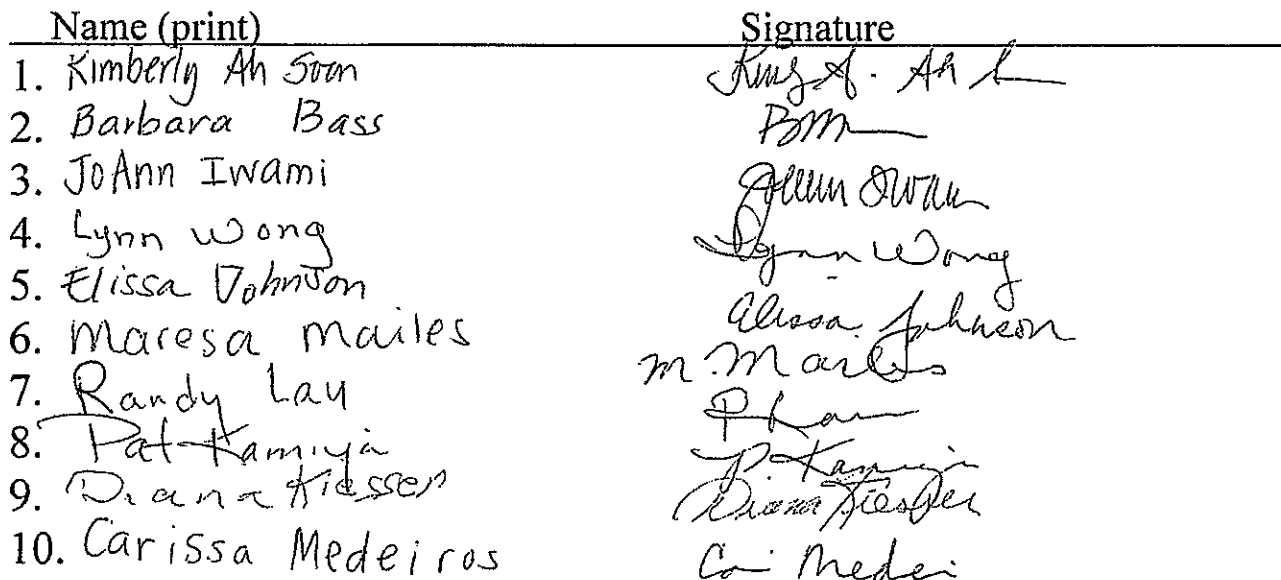 Name (print) Signature
1. Kimberly Ah Soon
2. Barbara Bass
3. JoAnn Iwami
4. Lynn Wong Lynn Wong
5. Elissa Johnson Elissa Johnson
6. Maresa Mailes M. Mailes
7. Randy Lau
8. Pat Kamiya P Kamiya
9. Diana Diana
10. Carissa Medeiros